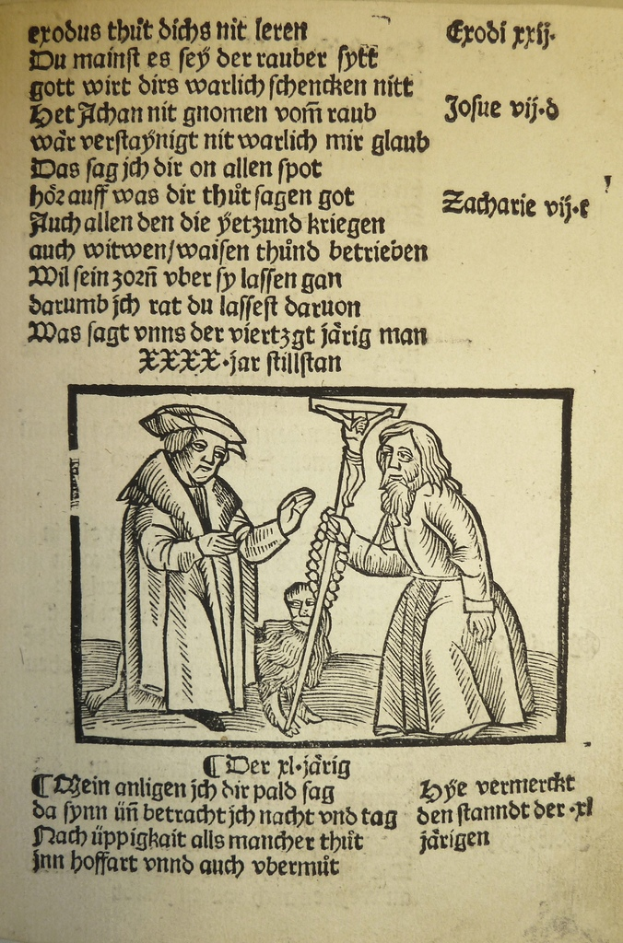 exodus thůt dichs nit leren
Exodi xxij.
Du mainst es seÿ der rauber sytt
gott wirt dirs warlich schencken nitt
Het Achan nit gnomen vom̄ raub
Josue vij.d
wår verstaÿnigt nit warlich mir glaub
Das sag jch dir on allen spot
hőr auff was dir thůt sagen got
Zacharie vij.c
Auch allen den die ÿetzund kriegen
auch witwen/waisen thůnd betrieben
Wil sein zorn̄ vber sy lassen gan
darumb jch rat du lassest daruon
Was sagt vnns der viertzgt jårig man
XXXX.jar stillstan
¶ Der xl.jårig
¶ Mein anligen jch dir pald sag
da synn vn̄ betracht jch nacht vnd tag
Nach üppigkait alls mancher thůt
jnn hoffart vnnd auch vbermůt
Hÿe vermerckt
den stanndt der .xl
jårigen